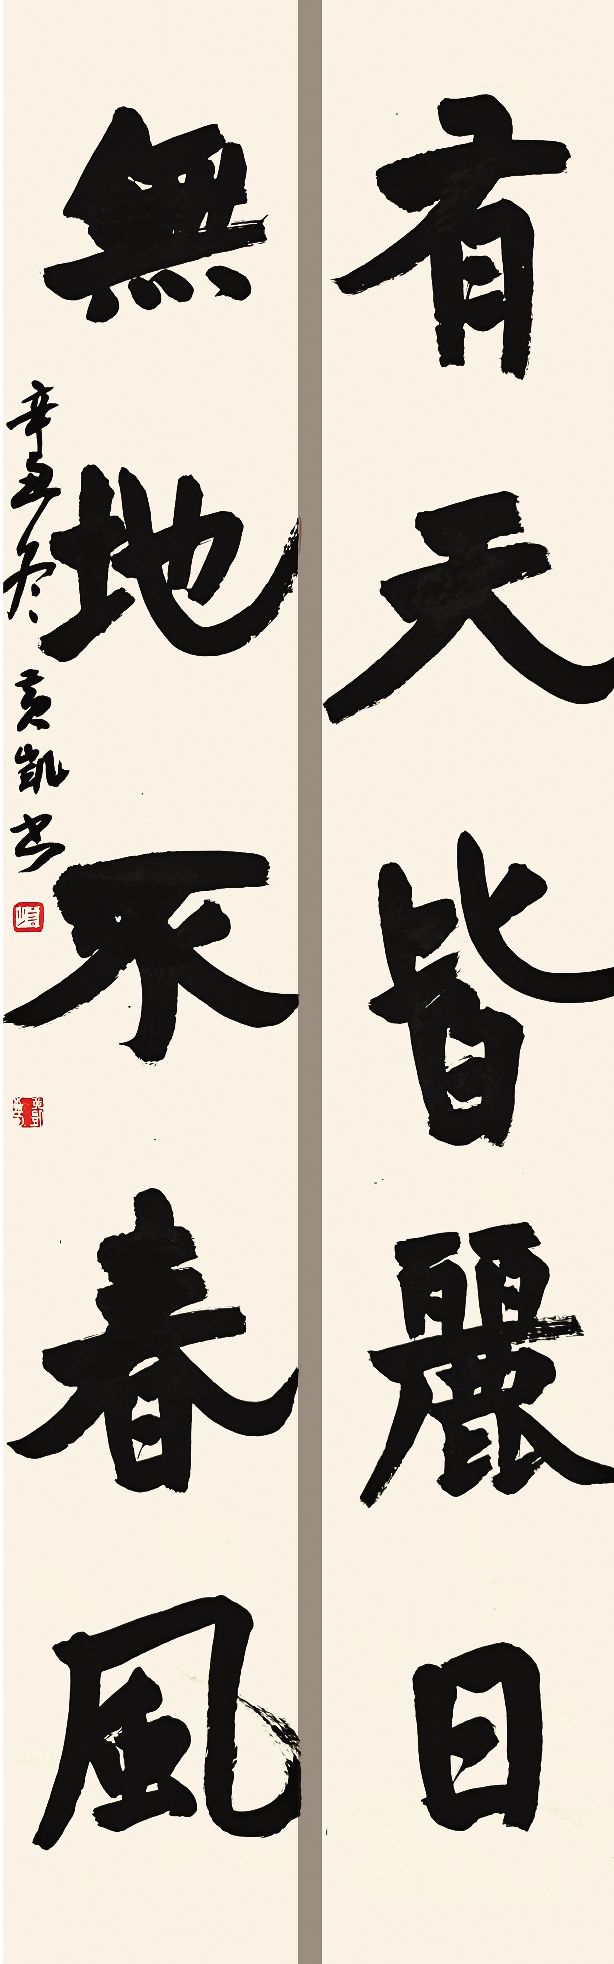 有天皆麗日
無地不春風
辛丑冬黃凱書